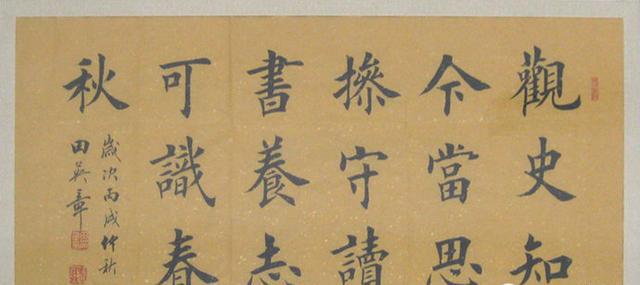 觀史知
今當思
摻守讀
書養志
可識春
秋
歲次丙戌仲秋
田英章